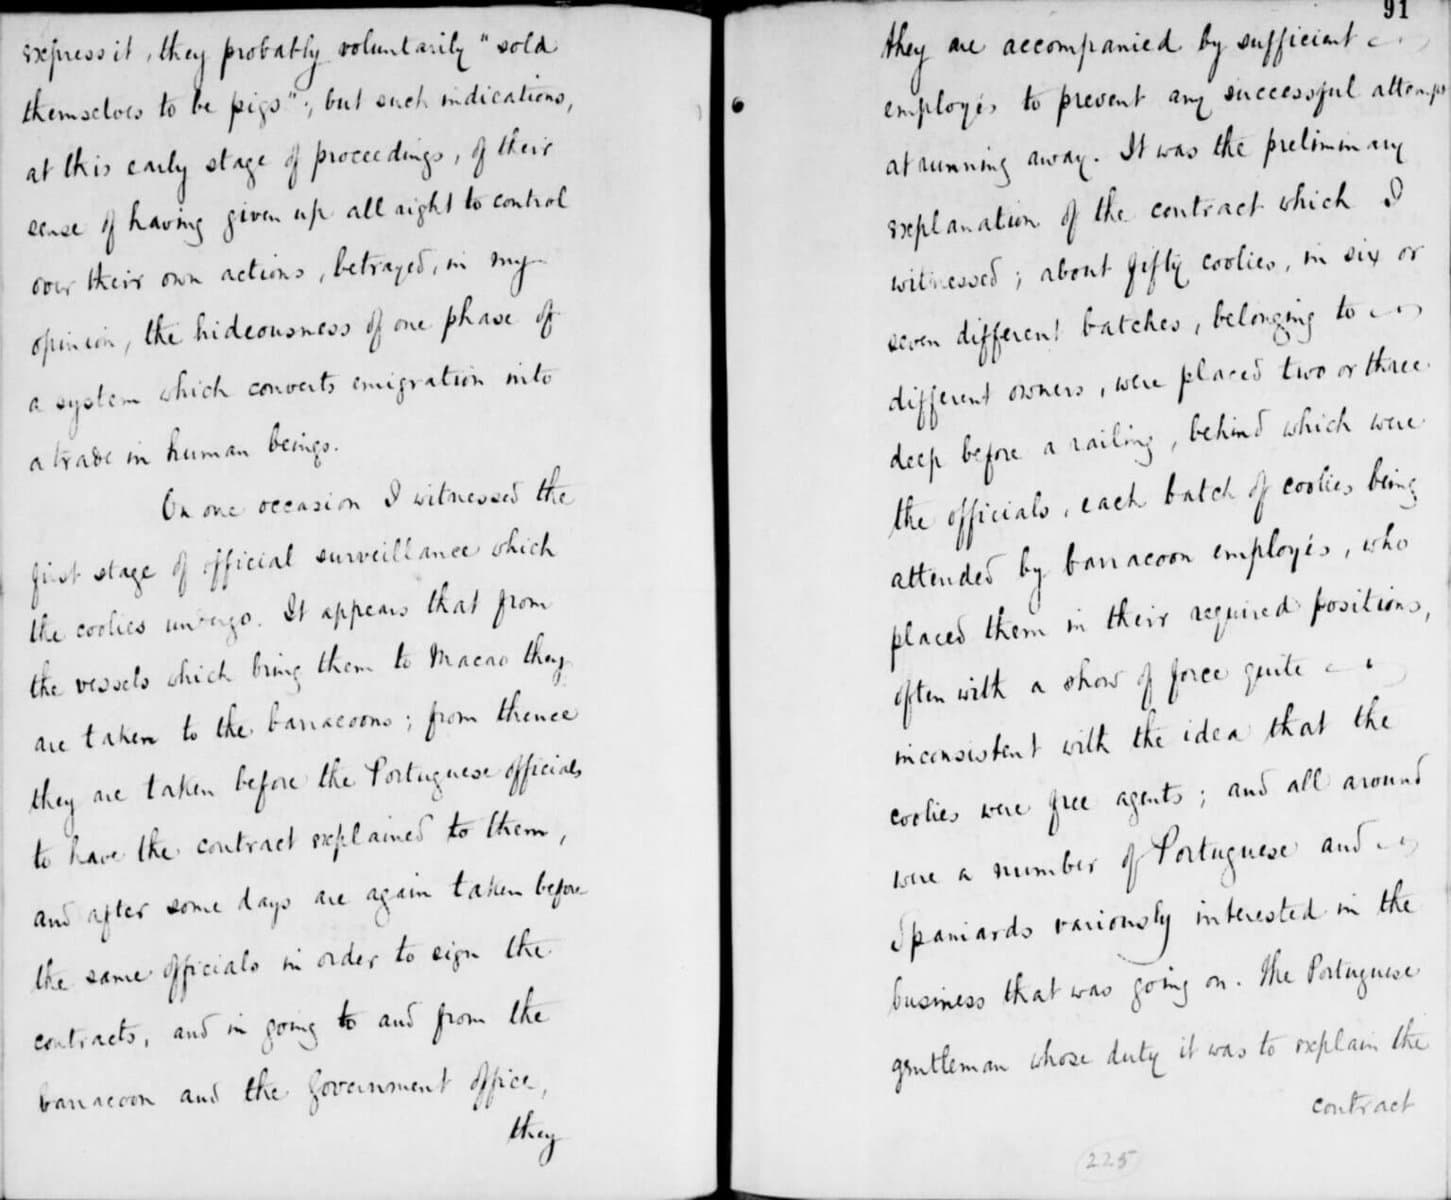 express it, they probably voluntarily "sold
themselves to be pigs"; but such indications,
at this early stage of proceedings, of their
sense of having given up all right to control
over their own actions, betrayed, in my
opinion, the hideousness of one phase of
a system which converts emigration into
a trade in human beings.
On one occasion I witnessed the
first stage of official surveillance which
the coolies undergo. It appears that from
the vessels which bring them to Macao they
are taken to the barracoons; from thence
they are taken before the Portuguese officials
to have the contract explained to them,
and after some days are again taken before
the same officials in order to sign the
contracts, and in going to and from the
barracoon and the Government office,
they
91
they are accompanied by sufficient
employés to prevent any successful attempt
at running away. It was the preliminary
explanation of the contract which I
witnessed; about fifty coolies, in six or
seven different batches, belonging to
different owners, were placed two or three
deep before a railing, behind which were
the officials, each batch of coolies being
attended by barracoon employés, who
placed them in their required positions,
often with a show of force quite
inconsistent with the idea that the
coolies were free agents; and all around
were a number of Portuguese and
Spaniards variously interested in the
business that was going on. The Portuguese
gentleman whose duty it was to explain the
contract
225